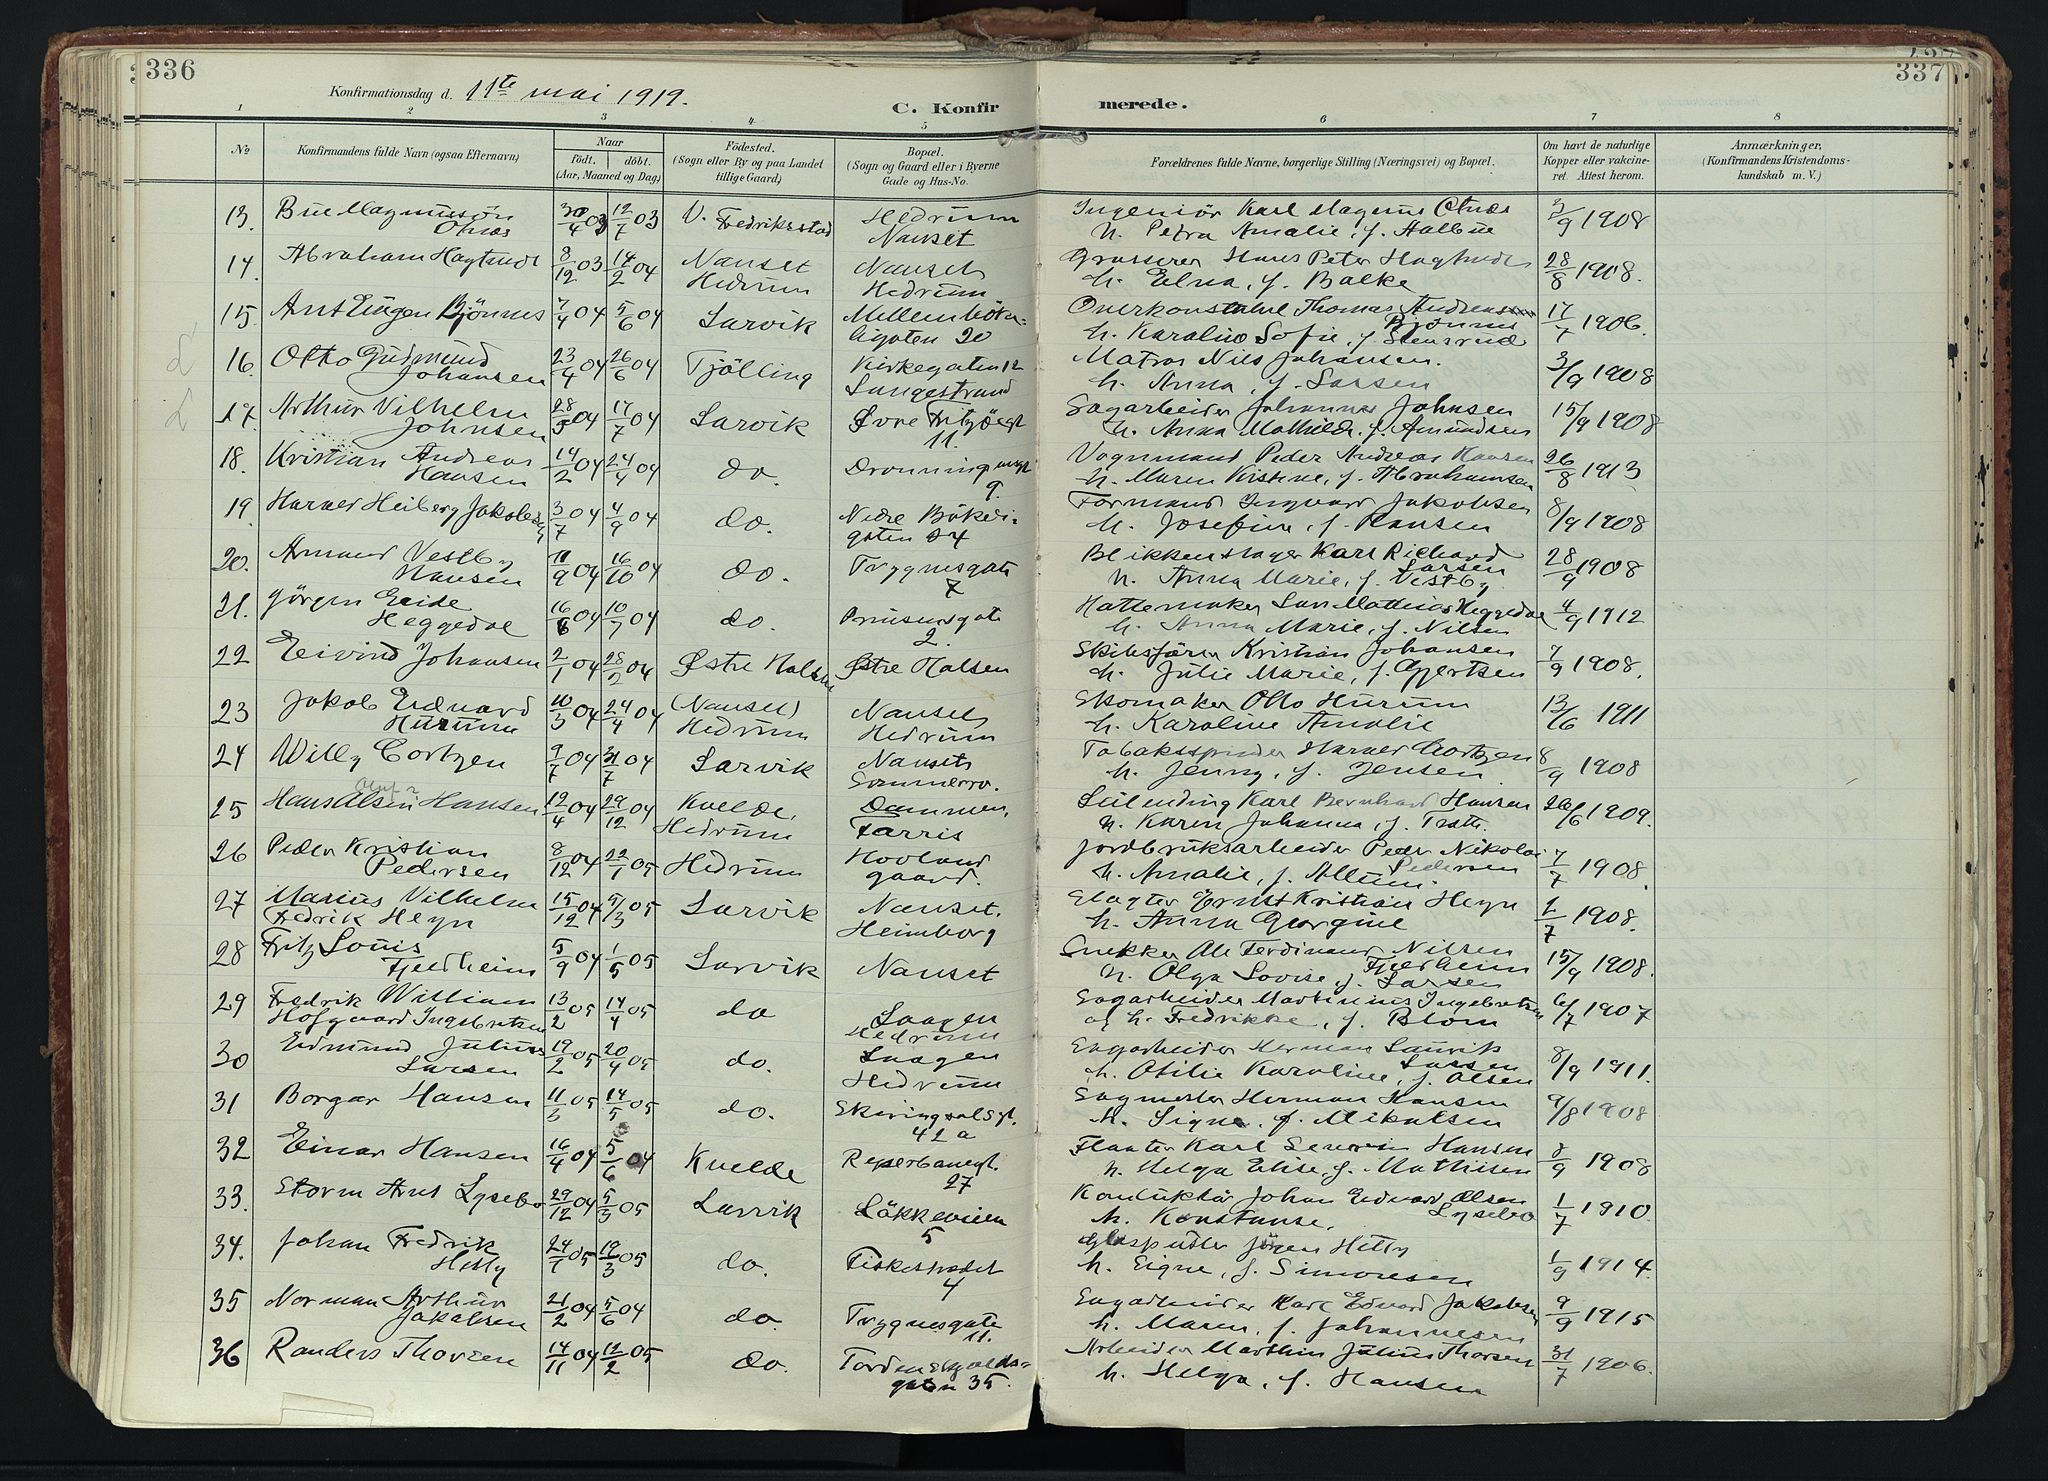 336
337
Konfirmationsdag d. 11te mai 1919.
C. Konfirmerede.
1 2 3 4 5 6 7 8
No
Konfirmandens fulde Navn (ogsaa Efternavn)
Naar
født. døbt.
(Aar, Maaned og Dag)
Fødested.
(Sogn eller By og paa Landet
tillige Gaard)
Bopæl.
(Sogn og Gaard eller i Byerne
Gade og Hus-No.
Forældrenes fulde Navne, borgerlige Stilling (Næringsvei) og Bopæl.
Om havt de naturlige
Kopper eller vakcine-
ret. Attest herom.
Anmærkninger.
(Konfirmandens Kristendoms-
kundskab m. V.)
13. 30/4 03 12/7 03 V. Fredriksstad Hedrum Ingeniør Karl Magnus 3/9 1908
Nanset h. Petra Amalie, f.
14. Abraham Hagtvedt 8/12 03 14/2 04 Nanset Nanset Grosserer Hans Peter Hagtvedt 28/8 1908.
Hedrum Hedrum h. Elna, f. Balke
15. Bjönnes 7/4 04 5/6 04 Larvik Overkonstabel Thomas 17/7 1906.
gaten 20 h. Sofie, f. Stensrud
16. Otto Gudmund 23/4 04 26/6 04 Tjölling Kirkegaten 12 Matros Nils Johansen. 3/9 1908
Johansen Langestrand h. Anna, f. Larsen
17. Arthur Vilhelm 17/7 04 Larvik Øvre Johannes Johnsen 15/9 1908
Johnsen 11. h. Anna Mathilde, f. Amundsen
18. Kristian Andreas 14/2 04 24/4 04 do. Vognmand Peder Andreas Hansen 26/8 1913
Hansen 9. h. Maren Kristine, f. Abrahamsen
19. Heiberg Jakobsen 3/7 04 4/9 04 do. Nedre Formand Ingvard Jakobsen 8/9 1908
gaten h. Josefine, f. Hansen
20. Vestby 11/9 04 16/10 04 do. Trygvesgate Blikkenslager Karl Richard 28/9 1908
Hansen 7 Larsen
h. Anna Marie, f. Vestby
21. Jörgen Eeide 16/6 04 10/7 04 do. Prinsensgate Hattemaker Mathias Heggedal 4/9 1912
Heggedal 2. h. Anna Marie, f. Nilsen
22 Eivind Johansen 2/1 04 28/2 04 Østre Halsen Østre Halsen Kristian Johansen 7/9 1908.
h. Julie Marie, f. Gjertsen
23 Jakob Edvard 10/3 04 24/4 04 (Nanset) Nanset Skomaker Otto Hurum 13/6 1911
Hurum Hedrum Hedrum h. Karoline Amalie
24 Willy Cortzen 9/7 04 31/7 04 Larvik Nanset Tabaksspinder Cortzen 8/9 1908
h. Jenny, f. Jensen
25 Hans Hansen 12/4 04 29/12 04 Kvelde, Dammen, Leilending Karl Bernhard Hansen 26/6 1909.
Hedrum Farris h. Karen Johanna, f.
26 Peder Kristian 8/12 04 22/1 05 Hedrum Hovland Jordbruksarbeider Peder Nikolai 7/7 1908.
Pedersen gaard. Pedersen
h. Amalie, f. Allum.
27 Marius Vilhelm 15/12 04 5/3 05 Larvik Nanset. Slagter Ernst Kristian Heyn 2/7 1908.
Fredrik Heyn Heimborg h. Anna Georgine
28 Fritz Louis 5/9 04 1/5 05 Larvik Nanset Snekker Ole Ferdinand Nilsen 15/9 1908.
Fjeldheim Fjeldheim
h. Olga Lovise, f. Larsen
29 Fredrik William 13/2 05 14/4 05 do Laagen Sagarbeider Martinius Ingebretsen 6/7 1907
Hofgaard Ingebretsen Hedrum og h. Fredrikke, f. Blom
30 Edmund Julius 19/2 05 20/4 05 do. Laagen Sagarbeider Herman Laurik 8/9 1911.
Larsen Hedrum Larsen
h. Otilie Karoline, f. Olsen
31 Borgar Hansen 11/3 05 14/5 05 do. Skiringssalsgt. Sagmester Herman Hansen 9/8 1908
42 a h. Signe, f. Mikalsen
32 Einar Hansen 16/4 04 5/6 04 Kvelde Reperbanegt. Karl Severin Hansen 8/9 1908
27 h. Helga Elise, f. Mathisen
33. Storm Arnt Lysebo 29/12 04 5/3 05 Larvik Løkkeveien Konduktør Johan Edvard Olsen 1/7 1910.
5 Lysebo
h. Konstanse.
34. Johan Fredrik 24/1 05 19/3 05 do. Fiskestrædet Glaspuster Jörgen Hetty 1/9 1914.
Hetty 4 h. Signe, f. Simonsen
35 Norman Arthur 21/2 04 5/6 04 do. Trygvesgate Sagarbeider Karl Edvard Jakobsen 9/9 1915
Jakobsen 11. h. Maren, f. Johannesen
36 Randers Thorsen 14/11 04 12/2 05 do. Tordenskjolds- Arbeider Marthin Julius Thorsen 31/7 1906.
gaten 35. h. Helga, f. Hansen